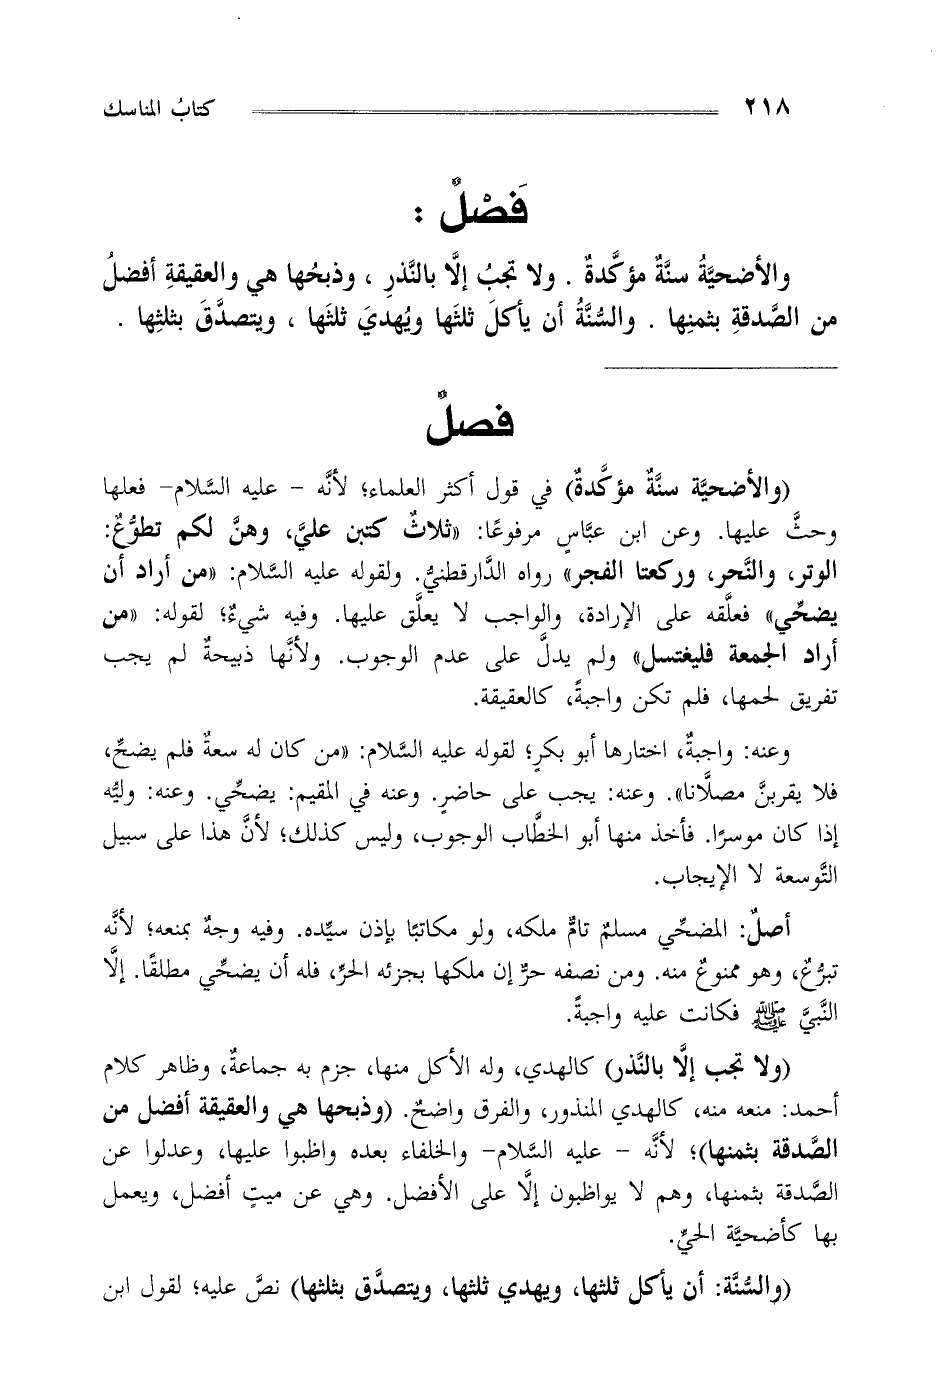 ٢١٨ كتابُ المناسك
فَصْلٌ :
والأضحيَّةُ سنَّةٌ مؤكَّدةٌ . ولا تجبُ إلَّا بالنَّذرِ ، وذبحُها هي والعقيقة أفضلُ
من الصَّدقةِ بثمنِها . والسُّنَّةُ أن يأكلَ ثلثَها ويُهديَ ثلثَها ، ويتصدَّقَ بثلثِها .
فصلٌ
(والأضحيَّة سنَّةٌ مؤكَّدةٌ) في قول أكثر العلماء؛ لأنَّه - عليه السَّلام- فعلها
وحثَّ عليها. وعن ابن عبَّاسٍ مرفوعًا: «ثلاثٌ كتبن عليَّ، وهنَّ لكم تطوُّعٌ:
الوتر، والنَّحر، وركعتا الفجر» رواه الدَّارقطنيُّ. ولقوله عليه السَّلام: «من أراد أن
يضحِّي» فعلَّقه على الإرادة، والواجب لا يعلَّق عليها. وفيه شيءٌ؛ لقوله: «من
أراد الجمعة فليغتسل» ولم يدلَّ على عدم الوجوب. ولأنَّها ذبيحةٌ لم يجب
تفريق لحمها، فلم تكن واجبةً، كالعقيقة.
وعنه: واجبةٌ، اختارها أبو بكرٍ؛ لقوله عليه السَّلام: «من كان له سعةٌ فلم يضحِّ،
فلا يقربنَّ مصلَّانا». وعنه: يجب على حاضرٍ. وعنه في المقيم: يضحِّي. وعنه: وليُّه
إذا كان موسرًا. فأخذ منها أبو الخطَّاب الوجوب، وليس كذلك؛ لأنَّ هذا على سبيل
التَّوسعة لا الإيجاب.
أصلٌ: المضحِّي مسلمٌ تامٌّ ملكه، ولو مكاتبًا بإذن سيِّده. وفيه وجهٌ بمنعه؛ لأنَّه
تبرُّعٌ، وهو ممنوعٌ منه. ومن نصفه حرٌّ إن ملكها بجزئه الحرِّ، فله أن يضحِّي مطلقًا. إلَّا
النَّبيَّ ﷺ فكانت عليه واجبةً.
(ولا تجب إلَّا بالنَّذر) كالهدي، وله الأكل منها، جزم به جماعةٌ، وظاهر كلام
أحمد: منعه منه، كالهدي المنذور، والفرق واضحٌ. (وذبحها هي والعقيقة أفضل من
الصَّدقة بثمنها)؛ لأنَّه - عليه السَّلام- والخلفاء بعده واظبوا عليها، وعدلوا عن
الصَّدقة بثمنها، وهم لا يواظبون إلَّا على الأفضل. وهي عن ميتٍ أفضل، ويعمل
بها كأضحيَّة الحيِّ.
(والسُّنَّة: أن يأكل ثلثها، ويهدي ثلثها، ويتصدَّق بثلثها) نصَّ عليه؛ لقول ابن